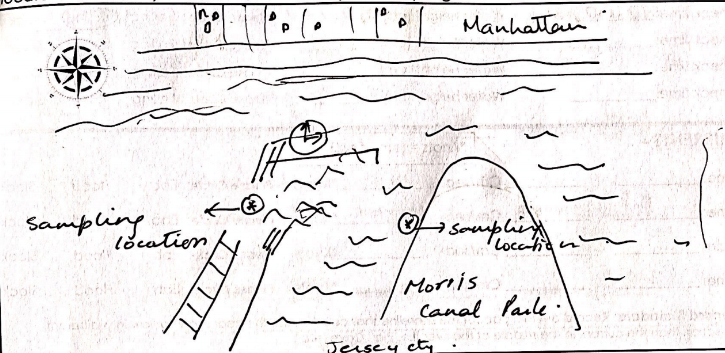 Manhattan
Sampling
location
Sampling
location
Morris
Canal Park.
Jersey cty.